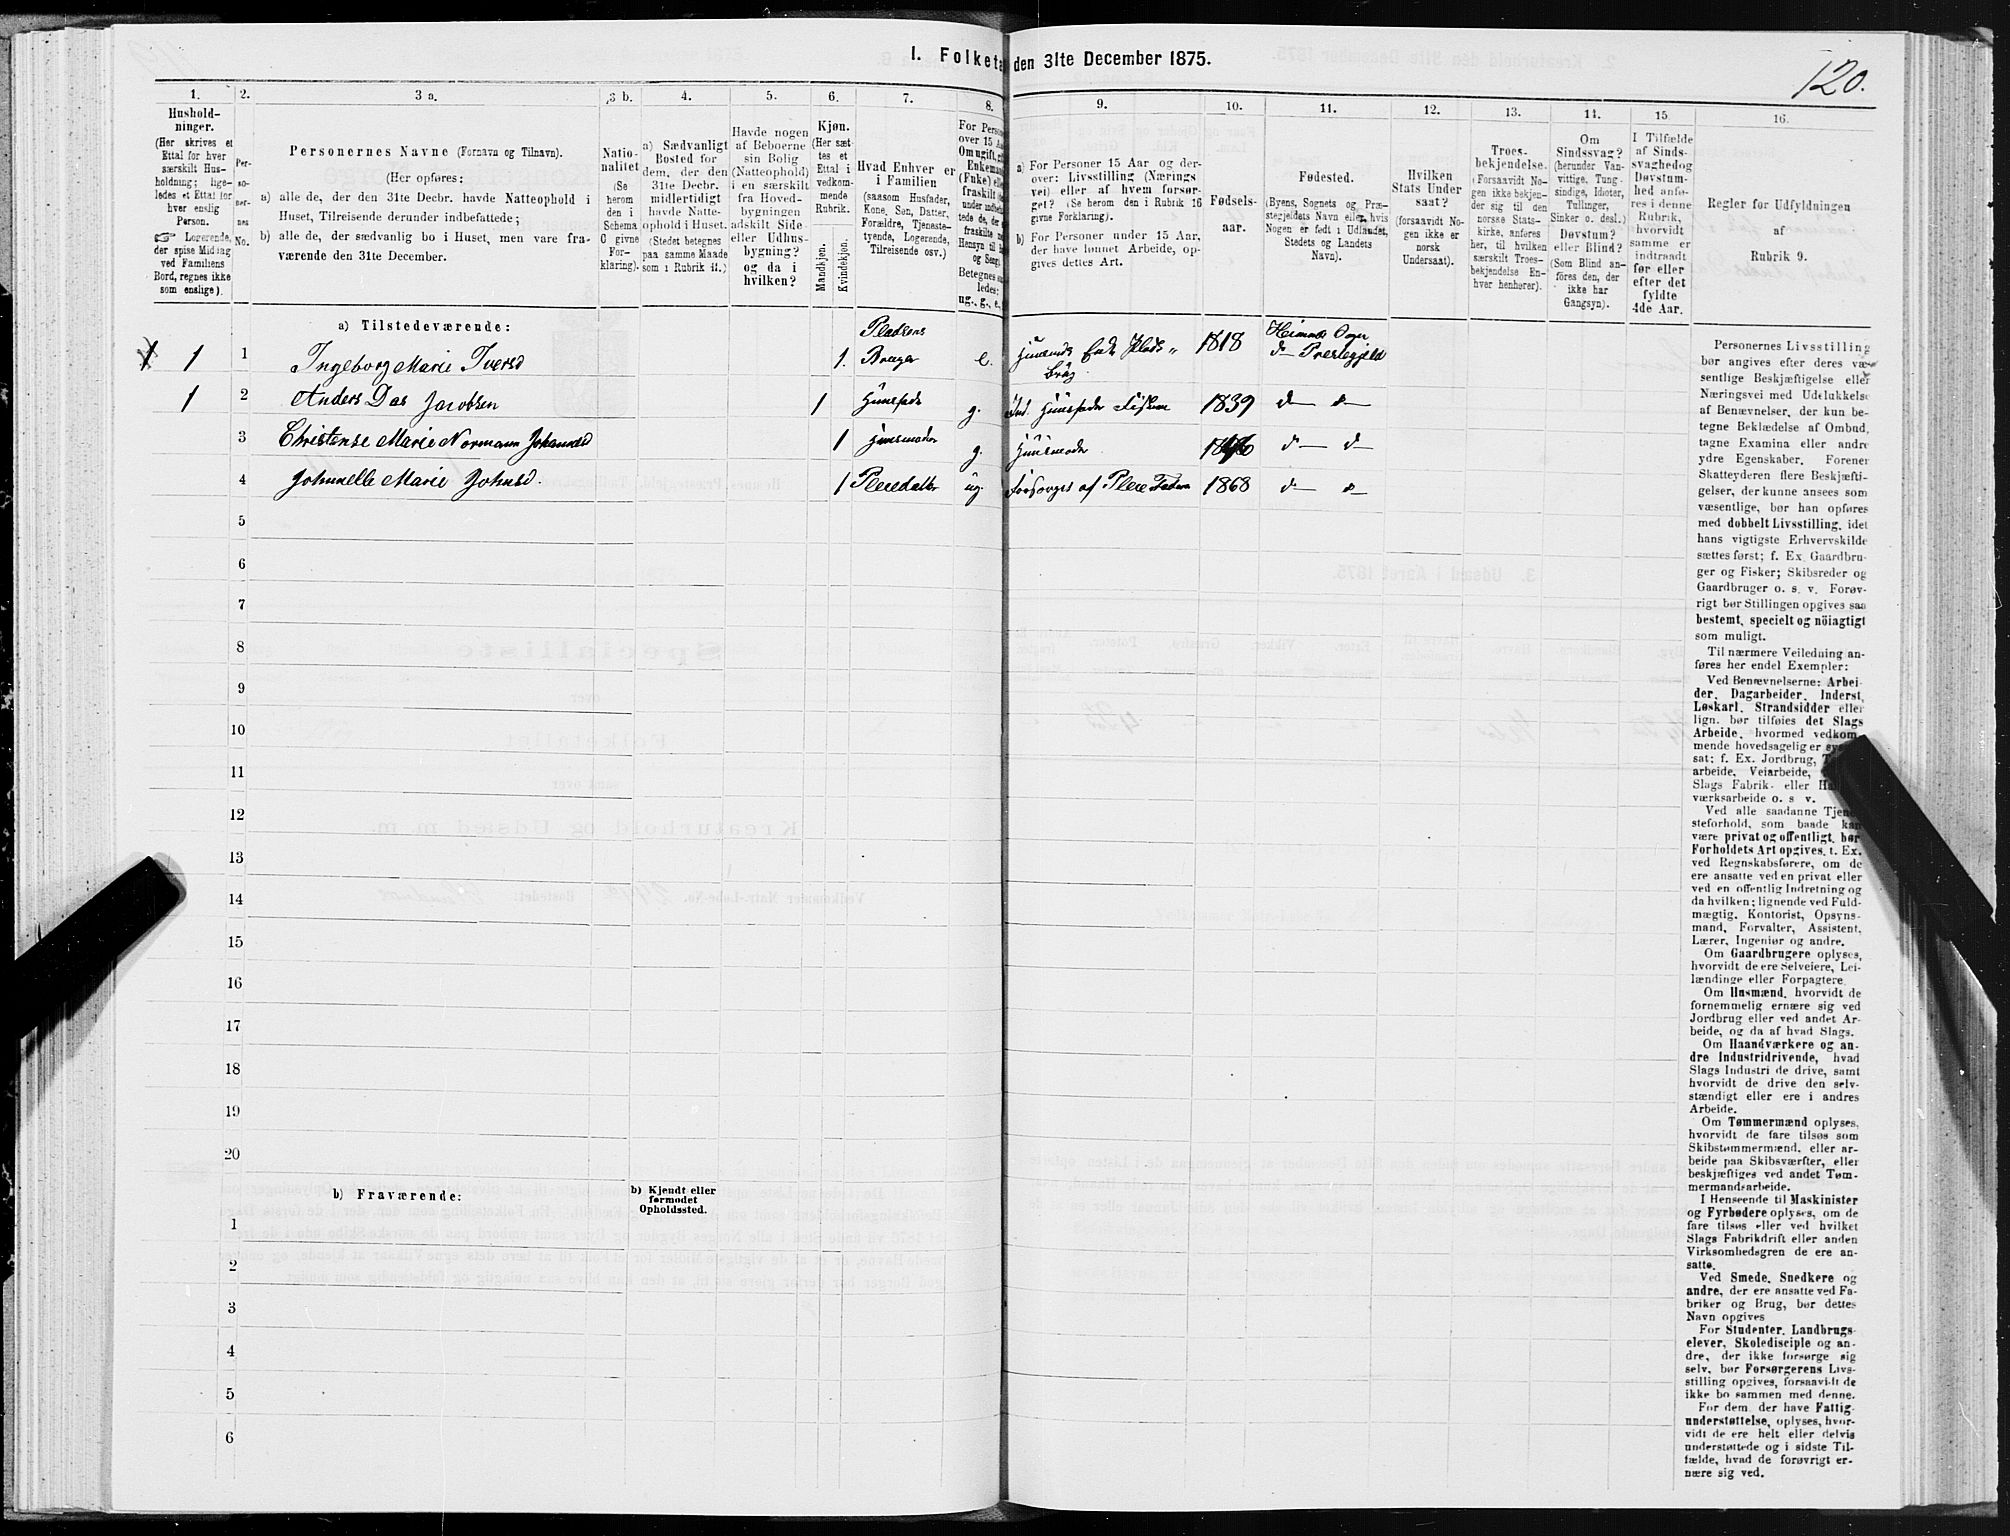 I. Folketa den 31te December 1875.
120.
1.
Hushold-
ninger.
(Her skrives et
Ettal for hver
særskilt Hus-
holdning; lige-
ledes et Ettal for
hver enslig
Person.
☞ Logerende,
der spise Middag
ved Familiens
Bord, regnes ikke
som enslige).
2.
Per-
so-
ner-
nes
No.
3 a.
Personernes Navne (Fornavn og Tilnavn).
(Her opføres:
a) alle de, der den 31te Decbr. havde Natteophold i
Huset, Tilreisende derunder indbefattede;
b) alle de, der sædvanlig bo i Huset, men vare fra-
værende den 31te December.
3 b.
Natio-
nalitet
(Se
herom
den i
Schema
C givne
For-
klaring).
4.
a) Sædvanligt
Bosted for
dem, der den
31te Decbr.
midlertidigt
havde Natte-
ophold i Huset.
(Stedet betegnes
paa samme Maade
som i Rubrik 11.)
5.
Havde nogen
af Beboerne
sin Bolig
(Natteophold)
i en særskilt
fra Hoved-
bygningen
adskilt Side-
eller Udhus-
bygning?
og da i
hvilken?
6.
Kjøn.
(Her sæt-
tes et
Ettal i
vedkom-
mende
Rubrik.
Mandkjøn.
Kvindekjøn.
7.
Hvad Enhver er
i Familien
(saasom Husfader,
Kone, Søn, Datter,
Forældre, Tjeneste-
tyende, Logerende,
Tilreisende osv.)
8.
For Perso
over 15 Aa
Om ugift, g
Enkeman
(Fnke) elle
fraskilt
under indbefat
tede de, der
fraskilte
Hensyn til
og Seng.
Betegnes saa
ledes:
ug., g., e.,
9.
a) For Personer 15 Aar og der-
over: Livsstilling (Nærings
vei) eller af hvem forsør-
get? (Se herom den i Rubrik 16
givne Forklaring).
b) For Personer under 15 Aar,
der have lønnet Arbeide, op-
gives dettes Art.
10.
Fødsels-
aar.
11.
Fødested.
(Byens, Sognets og Præ-
stegjeldets Navn eller, hvis
Nogen er født i Udlandet,
Stedets og Landets
Navn).
12.
Hvilken
Stats Under
saat?
(forsaavidt No-
gen ikke er
norsk
Undersaat).
13.
Troes-
bekjendelse.
(Forsaavidt No-
gen ikke bekjen-
der sig til den
norske Stats-
kirke, anføres
her, til hvilken
særskilt Troes-
bekjendelse En-
hver henhører).
14.
Om
Sindssvag?
(herunder Van-
vittige, Tung-
sindige, Idioter,
Tullinger,
Sinker o. desl.)
Døvstum?
eller Blind?
(Som Blind an-
føres den, der
ikke har
Gangsyn).
15
I Tilfælde
af Sinds-
svaghed og
Døvstum-
hed anfø-
res i denne
Rubrik,
hvorvidt
samme er
indtraadt
før eller
efter det
fyldte
4de Aar.
16.
Regler for Udfyldningen
af
Rubrik 9.
a) Tilstedeværende:
1 1 Ingeborg Marie Iversd 1. Pladsens Bruger e. Pladsbrug 1818 Prestegjeld
1 2 Anders Das Jacobsen 1 Huusfader g. Ind. Huusfader Fisker 1839 d— d—
3 Christense Marie Normann Johansd 1 Huusmoder g. Huusmoder 1846 d— d—
4 Johnelle Marie Johnsd. 1 Pleiedatter ug. Forsørges af Pleie Fader 1868 d— d—
5
6
7
8
9
10
11
12
13
14
15
16
17
18
19
20
b) Fraværende:
b) Kjendt eller
formodet
Opholdssted.
1
2
3
4
5
6
Personernes Livsstilling
bør angives efter deres væ-
sentlige Beskjæftigelse eller
Næringsvei med Udelukkelse
af Benævnelser, der kun be-
tegne Beklædelse af Ombud,
tagne Examina eller andre
ydre Egenskaber. Forener
Skatteyderen flere Beskjæfti-
gelser, der kunne ansees som
væsentlige, bør han opføres
med dobbelt Livsstilling, idet
hans vigtigste Erhvervskilde
sættes først; f. Ex. Gaardbru-
ger og Fisker; Skibsreder og
Gaardbruger o. s. v. Forøv-
rigt bør Stillingen opgives saa
bestemt, specielt og nöiagtigt
som muligt.
Til nærmere Veiledning an-
føres her endel Exempler:
Ved Benævnelserne: Arbei-
der, Dagarbeider, Inderst,
Løskarl, Strandsidder eller
lign. bør tilføies det Slags
Arbeide, hvormed vedkom-
mende hovedsagelig er syssel
sat; f. Ex. Jordbrug,
arbeide, Veiarbeide,
Slags Fabrik- eller
værksarbeide o. s v.
Ved alle saadanne Tjene
steforhold, som baade kan
være privat og offentligt, bør
Forholdets Art opgives, t. Ex.
ved Regnskabsførere, om de
ere ansatte ved en privat eller
ved en offentlig Indretning og
da hvilken; lignende ved Fuld-
mægtig, Kontorist, Opsyns-
mand, Forvalter, Assistent,
Lærer, Ingeniør og andre.
Om Gaardbrugere oplyses,
hvorvidt de ere Selveiere, Lei-
lændinge eller Forpagtere.
Om Husmænd, hvorvidt de
fornemmelig ernære sig ved
Jordbrug eller ved andet Ar-
beide, og da af hvad Slags.
Om Haandværkere og an-
dre Industridrivende, hvad
Slags Industri de drive, samt
hvorvidt de drive den selv-
stændigt eller ere i andres
Arbeide.
Om Tømmermænd oplyses,
hvorvidt de fare tilsøs som
Skibstømmermænd, eller ar-
beide paa Skibsværfter, eller
beskjæftiges ved andet Tøm-
mermandsarbeide.
I Henseende til Maskinister
og Fyrbødere oplyses, om de
fare tilsøs eller ved hvilket
Slags Fabrikdrift eller anden
Virksomhedsgren de ere an-
satte.
Ved Smede, Snedkere og
andre, der ere ansatte ved Fa-
briker og Brug, bør dettes
Navn opgives
For Studenter, Landbrugs-
elever, Skoledisciple og an-
dre, der ikke forsørge sig
selv, bør Forsørgerens Livs-
stilling opgives, forsaavidt de
ikke bo sammen med denne.
For dem, der have Fattig-
understøttelse, oplyses, hvor-
vidt de ere helt eller delvis
understøttede og i sidste Til-
fælde, hvad de forøvrigt er-
nære sig ved.